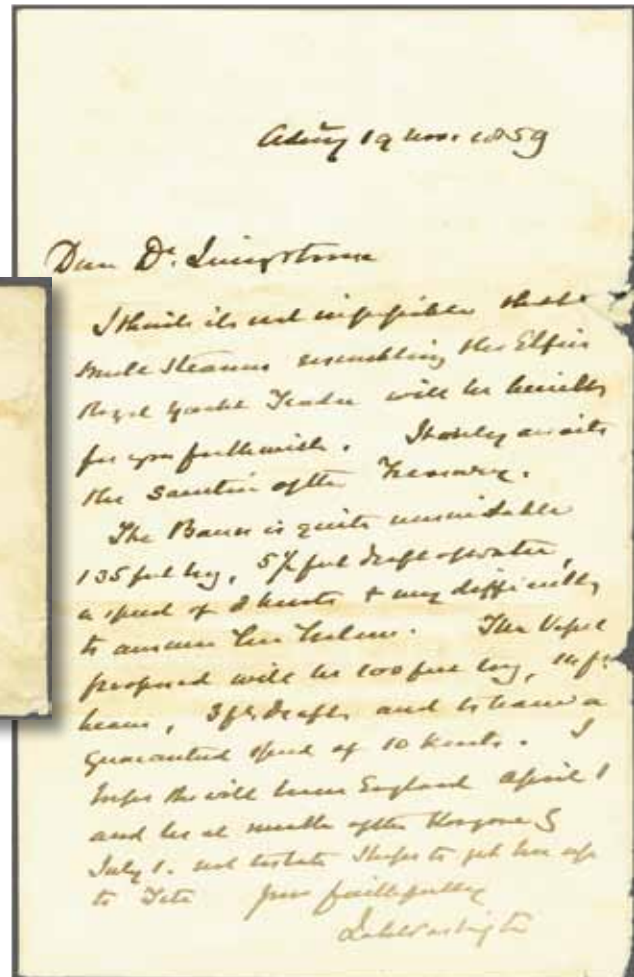 Admty 19 Nov. 1859
Dear Dr. Livingstone
I think it is not impossible that a
small steamer resembling the Elfin
Royal Yacht Tender will be built
for you forthwith. It only awaits
the sanction of the Treasury.
The Bann is quite unsuitable
135 feet long, 5½ feet draft of water,
a speed of 8 knots & very difficult
to answer her helm. The Vessel
proposed will be 100 feet long, 14 ft
beam, 3 ft draft, and to have a
guaranteed speed of 10 knots. I
hope she will leave England April 1
and be at mouth of the Kongone
July 1. not too late I hope to get her up
to Tete Yours faithfully
John Washington